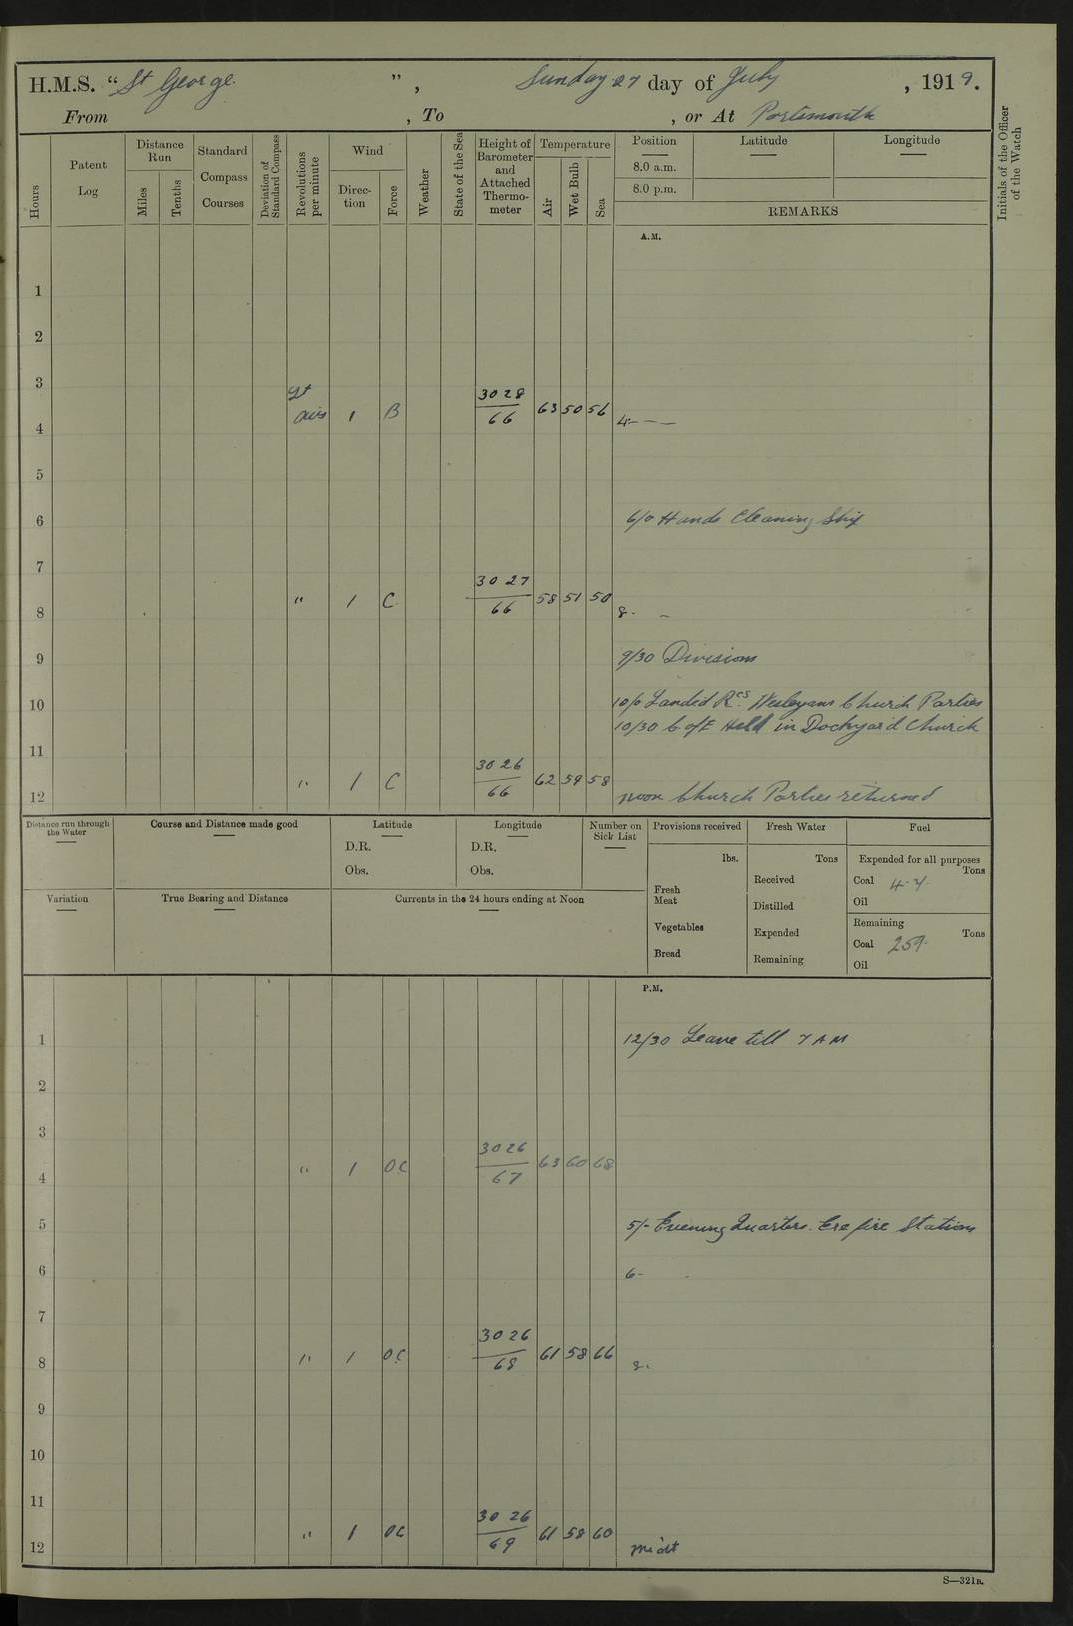 H.M.S. "St George", Sunday 27 day of July, 1919.
From , To , or At Portsmouth
Hours
Patent Log
Distance Run
Miles
Tenths
Standard Compass Courses
Deviation of Standard Compass
Revolutions per minute
Wind
Direction
Force
Weather
State of the Sea
Height of Barometer and Attached Thermometer
Temperature
Air
Wet Bulb
Sea
Position
Latitude
Longitude
8.0 a.m.
8.0 p.m.
REMARKS
Initials of the Officer of the Watch
A.M.
1
2
3
Lt airs 1 B 30 28 / 66 63 50 56
4 4 — —
5
6 6/0 Hands Cleaning Ship
7
" 1 C 30 27 / 66 58 51 50
8 8. -
9 9/30 Divisions
10 10/0 Landed R.Cs Wesleyans Church Parties
10/30 C of E Held in Dockyard Church
11
" 1 C 30 26 / 66 62 59 58
12 noon Church Parties returned
Distance run through the Water
Course and Distance made good
Latitude
D.R.
Obs.
Longitude
D.R.
Obs.
Number on Sick List
Provisions received
lbs.
Fresh Meat
Vegetables
Bread
Fresh Water
Tons
Received
Distilled
Expended
Remaining
Fuel
Expended for all purposes
Tons
Coal 4.7
Oil
Remaining
Tons
Coal 259
Oil
Variation
True Bearing and Distance
Currents in the 24 hours ending at Noon
P.M.
1 12/30 Leave till 7 AM
2
3
" 1 OC 30 26 / 67 63 60 68
4
5 5/- Evening Quarters. Exe fire Stations
6 6-
7
" 1 OC 30 26 / 68 61 58 66
8 8.
9
10
11
" 1 OC 30 26 / 69 61 58 60
12 midt
S—321B.